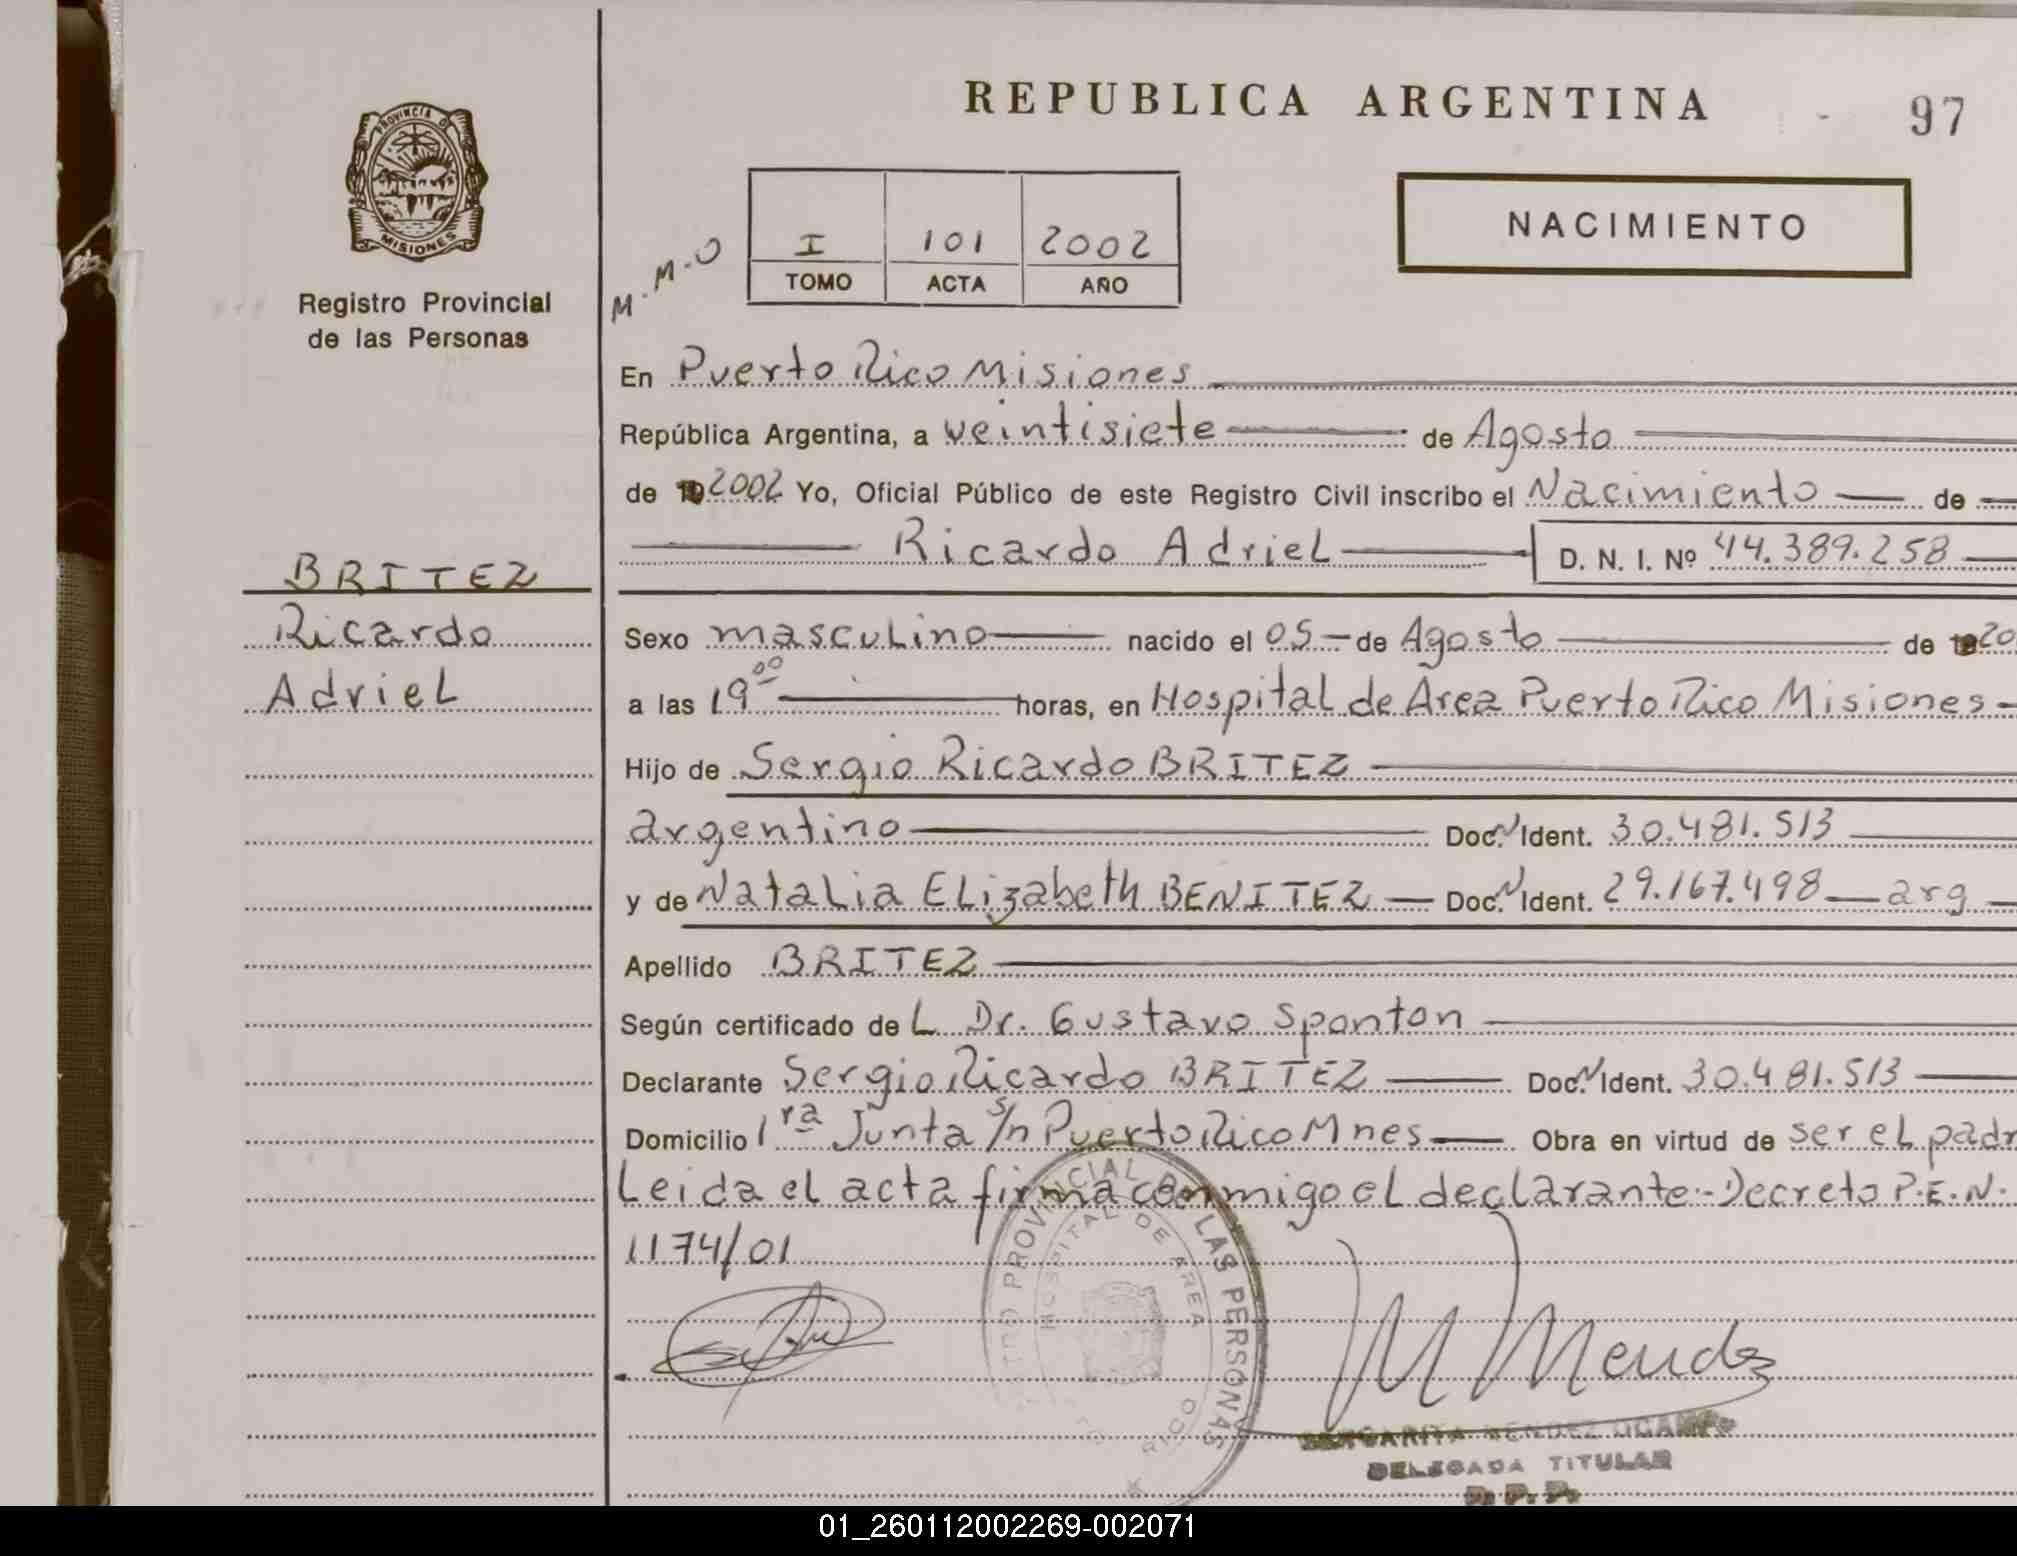 REPUBLICA ARGENTINA
97
PROVINCIA D
MISIONES
Registro Provincial
de las Personas
M.M.O
I 101 2002
TOMO ACTA AÑO
NACIMIENTO
En Puerto Rico Misiones
República Argentina, a veintisiete de Agosto
de 2002 Yo, Oficial Público de este Registro Civil inscribo el Nacimiento de
Ricardo Adriel D. N. I. Nº 44.389.258
BRITEZ
Ricardo
Adriel
Sexo masculino nacido el 05 de Agosto de 20
a las 19 00 horas, en Hospital de Area Puerto Rico Misiones
Hijo de Sergio Ricardo BRITEZ
argentino Doc. N Ident. 30.481.513
y de Natalia Elizabeth BENITEZ Doc. N Ident. 29.167.498 arg
Apellido BRITEZ
Según certificado de L Dr. Gustavo Sponton
Declarante Sergio Ricardo BRITEZ Doc. N Ident. 30.481.513
Domicilio 1ra Junta s/n Puerto Rico Mnes Obra en virtud de ser el padr
Leida el acta firma conmigo el declarante.- Decreto P.E.N.
1174/01
PROVINCIAL DE LAS PERSONAS
HOSPITAL DE AREA
RICO
M Mendez
MARGARITA MENDEZ OCAMPO
DELEGADA TITULAR
R. P. P.
01_260112002269-002071